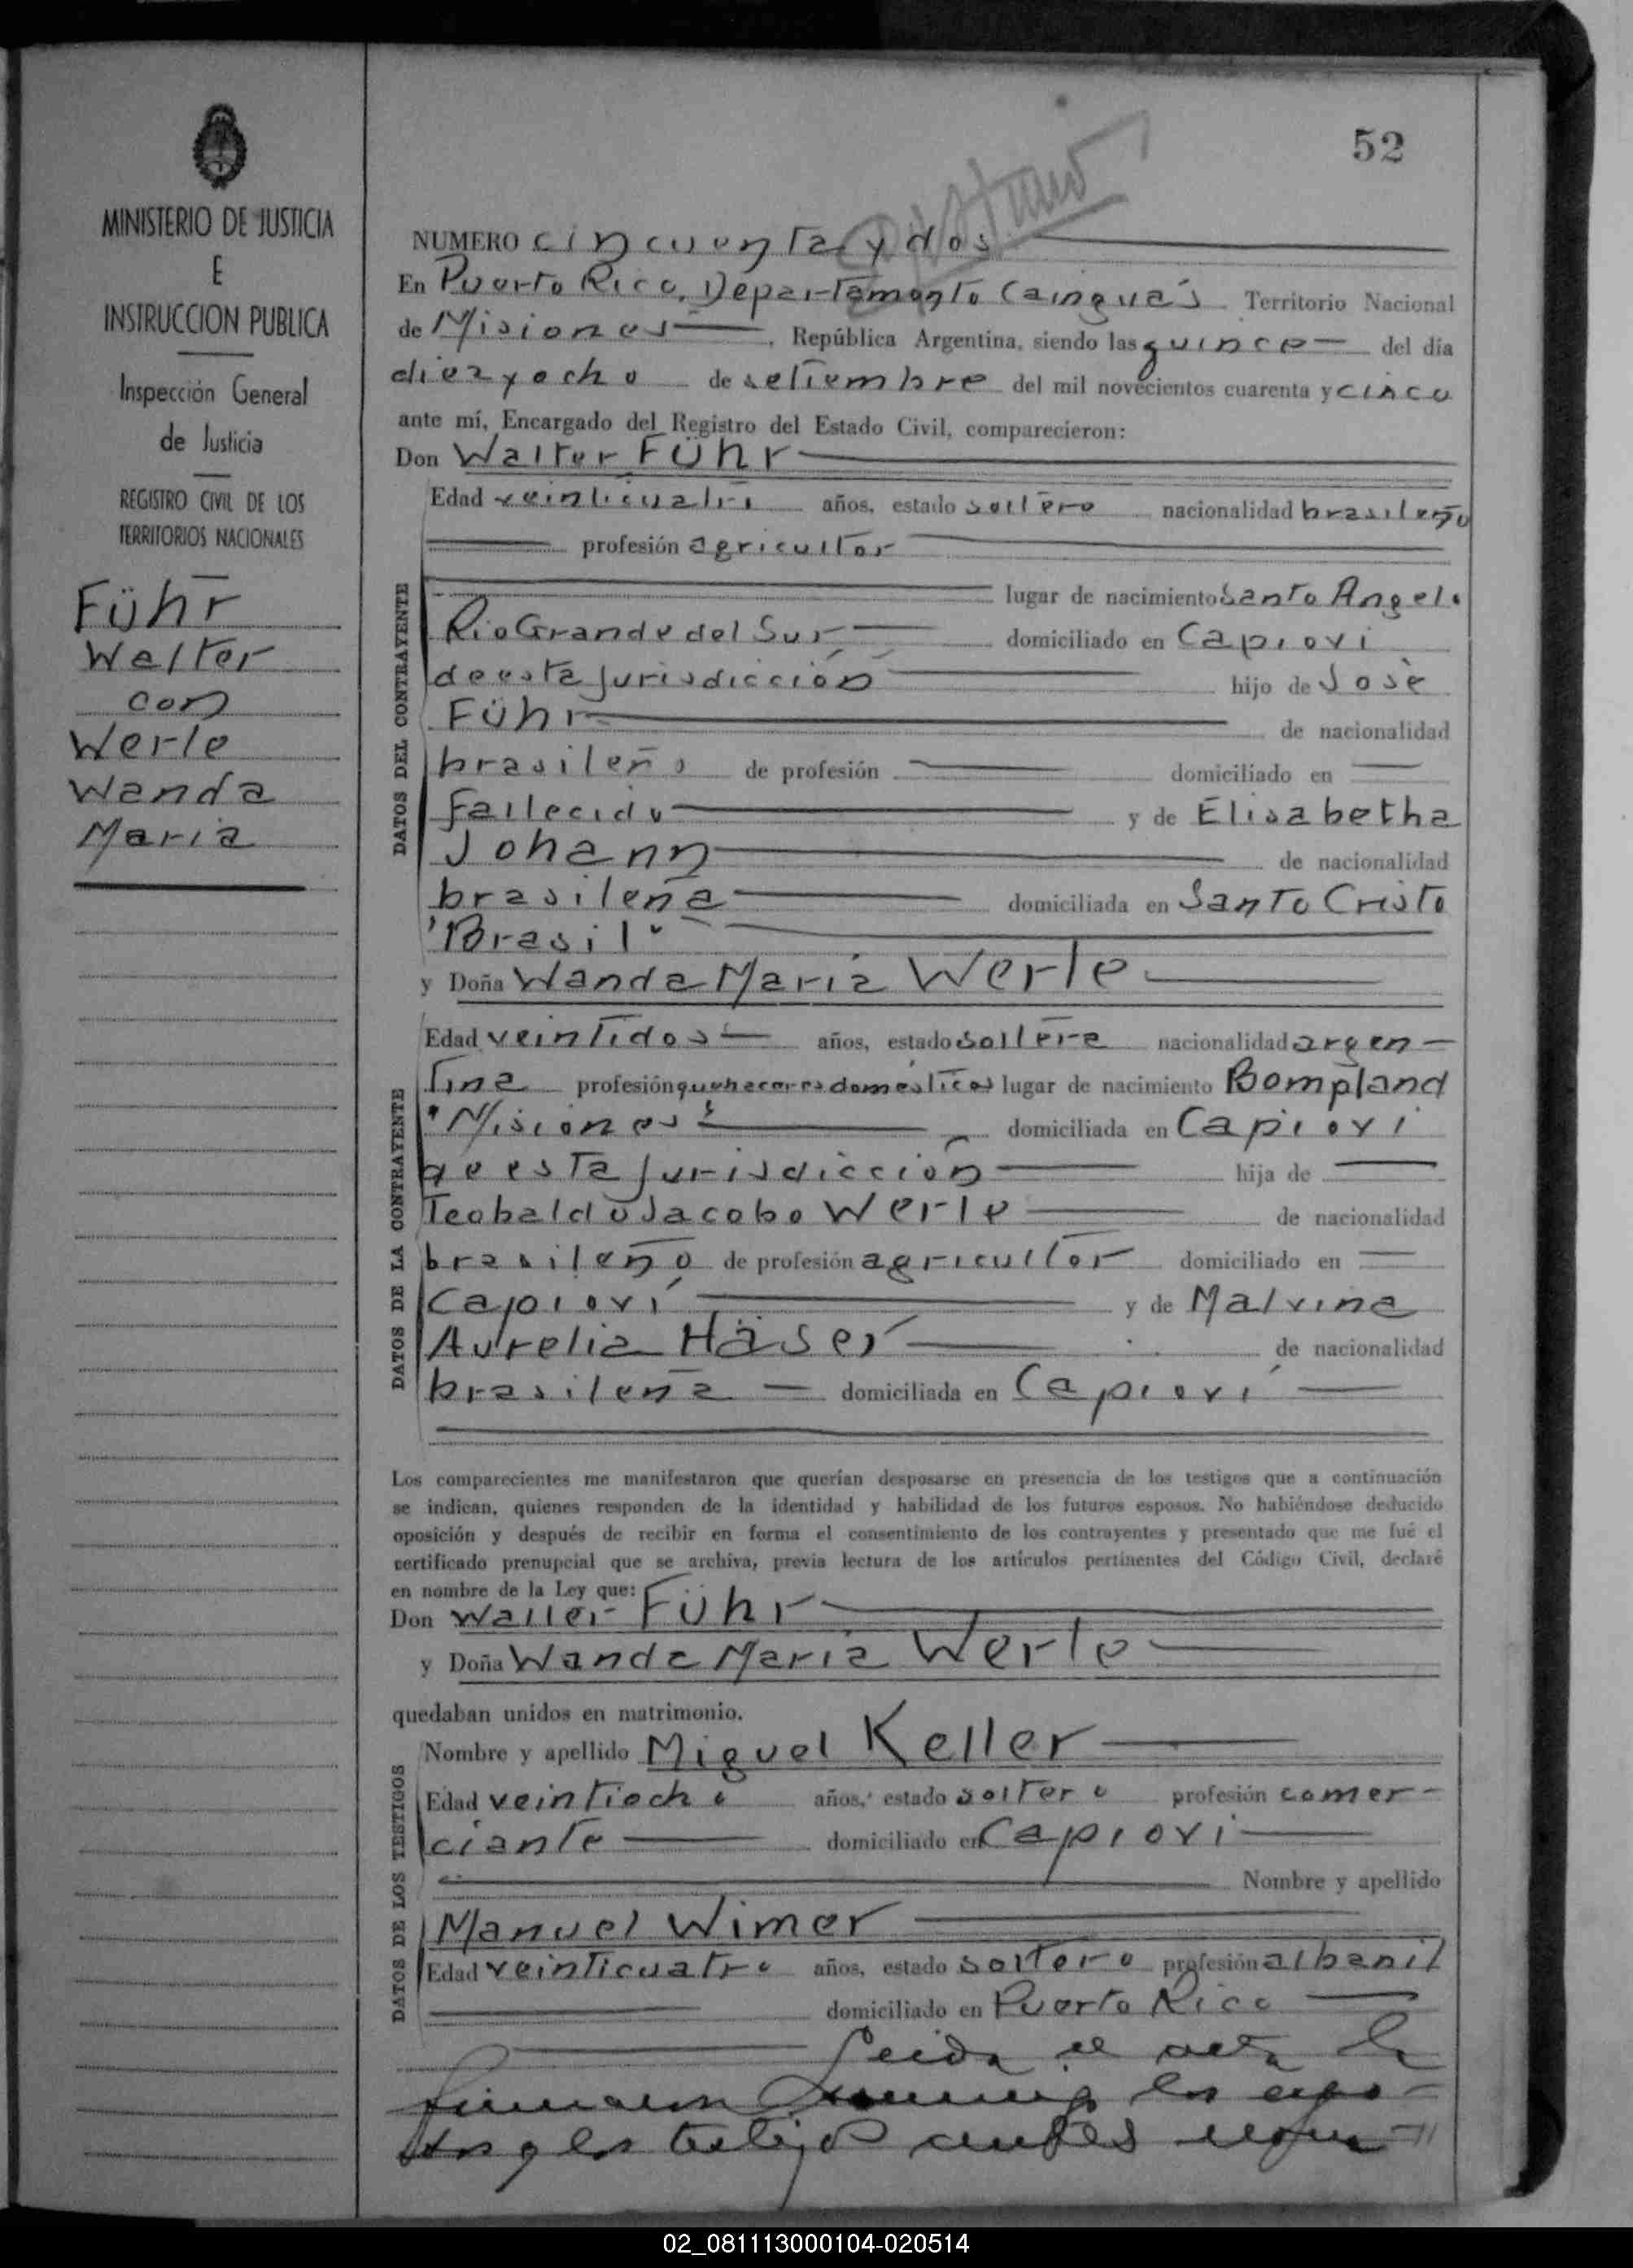 52
MINISTERIO DE JUSTICIA
E
INSTRUCCION PUBLICA
Inspección General
de Justicia
REGISTRO CIVIL DE LOS
TERRITORIOS NACIONALES
Führ
Walter
con
Werle
Wanda
Maria
NUMERO cincuenta y dos
En Puerto Rico, Departamento Cainguás Territorio Nacional
de Misiones, República Argentina, siendo las quince del día
diez y ocho de setiembre del mil novecientos cuarenta y cinco
ante mí, Encargado del Registro del Estado Civil, comparecieron:
Don Walter Führ
Edad veinticuatro años, estado soltero nacionalidad brasileño
profesión agricultor
DATOS DEL CONTRAYENTE
lugar de nacimiento Santo Angel.
Rio Grande del Sur domiciliado en Capiovi
de esta jurisdicción hijo de José
Führ de nacionalidad
brasileño de profesión domiciliado en
fallecido y de Elisabetha
Johann de nacionalidad
brasileña domiciliada en Santo Cristo
"Brasil"
y Doña Wanda Maria Werle
Edad veintidos años, estado soltera nacionalidad argen-
tina profesión quehaceres domésticos lugar de nacimiento Bompland
DATOS DE LA CONTRAYENTE
"Misiones" domiciliada en Capiovi
de esta jurisdicción hija de
Teobaldo Jacobo Werle de nacionalidad
brasileño de profesión agricultor domiciliado en
Capioví y de Malvina
Aurelia Häser de nacionalidad
brasileña domiciliada en Capioví
Los comparecientes me manifestaron que querían desposarse en presencia de los testigos que a continuación
se indican, quienes responden de la identidad y habilidad de los futuros esposos. No habiéndose deducido
oposición y después de recibir en forma el consentimiento de los contrayentes y presentado que me fué el
certificado prenupcial que se archiva, previa lectura de los artículos pertinentes del Código Civil, declaré
en nombre de la Ley que:
Don Walter Führ
y Doña Wanda Maria Werle
quedaban unidos en matrimonio.
DATOS DE LOS TESTIGOS
Nombre y apellido Miguel Keller
Edad veintiocho años, estado soltero profesión comer-
ciante domiciliado en Capiovi
Nombre y apellido
Manuel Wimer
Edad veinticuatro años, estado soltero profesión albanil
domiciliado en Puerto Rico
Leida el acta la
firmaron conmigo los espo-
sos y los testigos antes
02_081113000104-020514